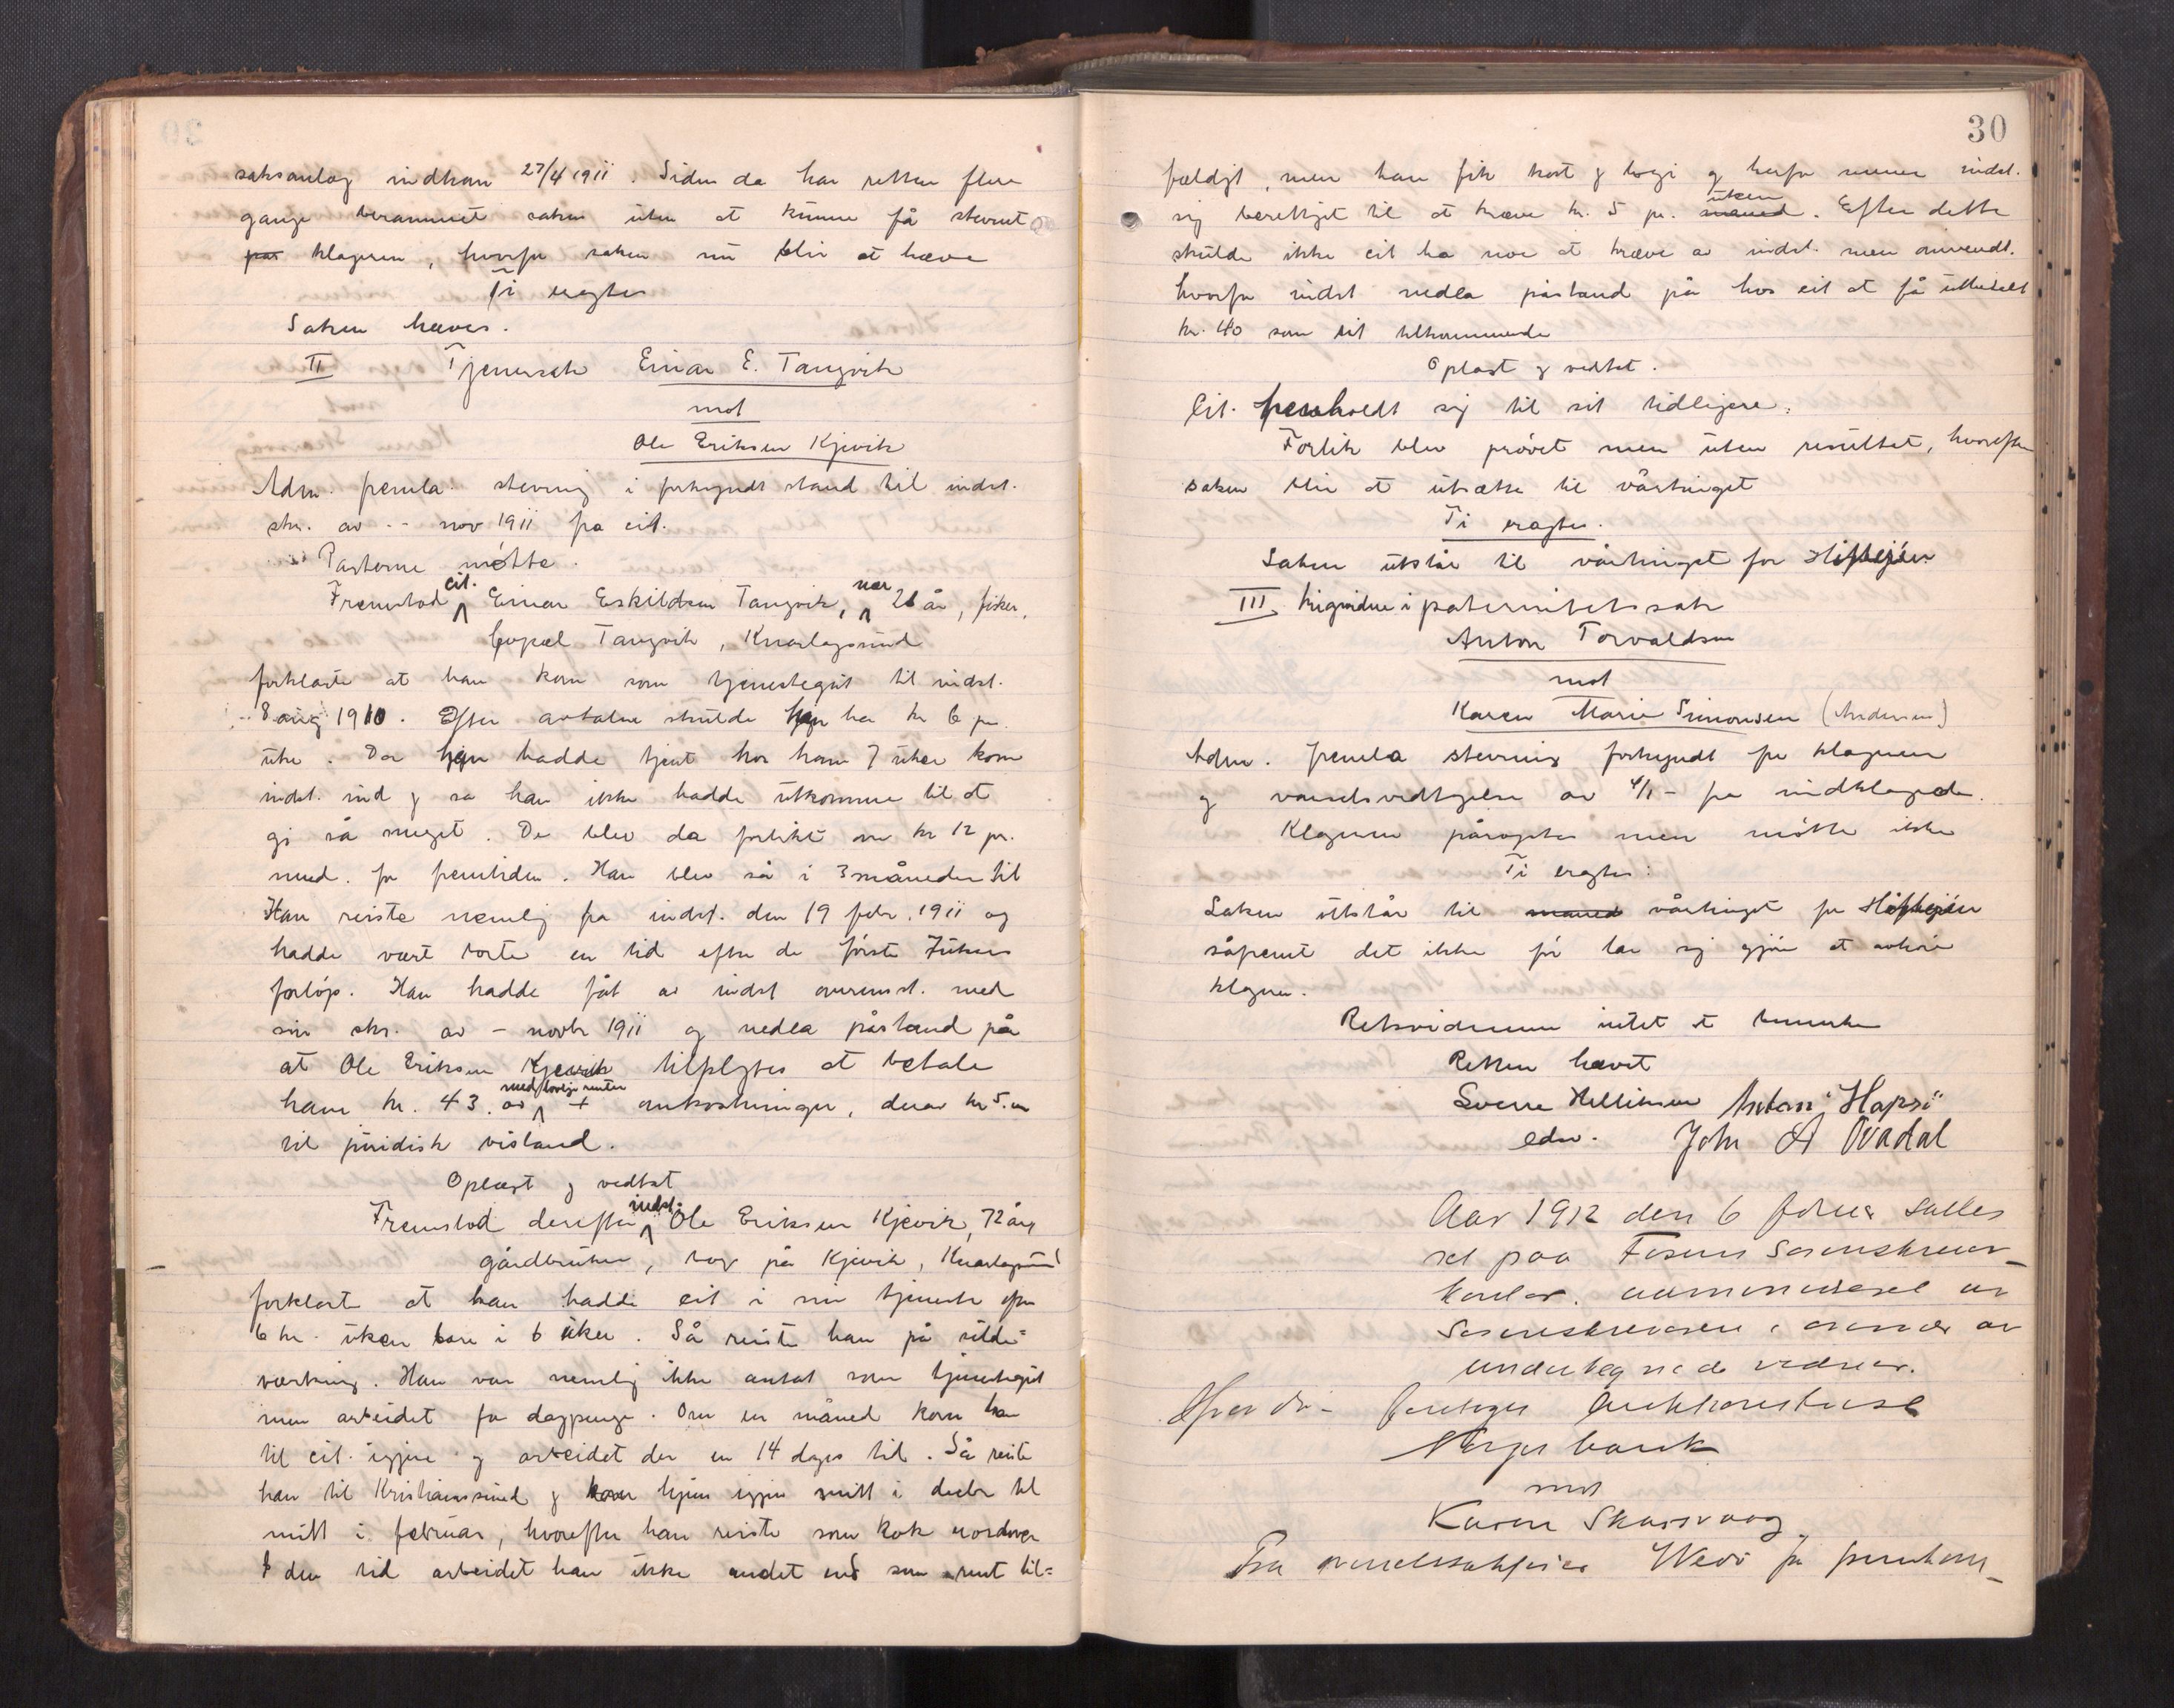 saksanlæg indkom 27/4 1911. Siden da har retten flere
gange berammet saken uten at kunne få stevnet
på klageren, hvorfor saken nu blir at hæve
Ti eragtes
Saken hæves.
II Tjenersak Einar E. Tangvik
mot
Ole Eriksen Kjevik
Adm. fremla stevning i forkyndt stand til indst.
skr. av - - nov 1911 fra cit.
Parterne møtte.
Fremstod cit. Einar Eskildsen Tangvik, nær 21 år, fisker,
bopæl Tangvik, Knarlagsund
forklarte at han kom som tjenestegut til indst.
8 aug 1910. Efter avtalen skulde han ha kr 6 pr.
uke. Da han hadde tjent hos ham 7 uker kom
indst. ind og sa han ikke hadde utkomme til at
gi så meget. De blev da forlikt om kr 12 pr.
mnd. for fremtiden. Han blev så i 3 måneder til
Han reiste nemlig fra indst. den 19 febr. 1911 og
hadde vært borte en tid efter de første 7 ukers
forløp. Han hadde fåt av indst overensst. med
sin skr. av - novbr 1911 og nedla påstand på
at Ole Eriksen Kjevik tilpligtes at betale
ham kr. 43.00 med lovlige renter + omkostninger, derav kr 5.00
til juridisk bistand.
Oplæst og vedtat
Fremstod derefter indst. Ole Eriksen Kjevik, 72 år,
gårdbruker, bor på Kjevik, Knarlagsund
forklart at han hadde cit i sin tjeneste for
6 kr. uken bare i 6 uker. Så reiste han på silde=
værking. Han var nemlig ikke antat som tjenestegut
men arbeidet for dagpenge. Om en måned kom han
til cit. igjen og arbeidet der en 14 dages tid. Så reiste
han til Kristianssund og kom hjem igjen midt i decbr til
midt i februar, hvorefter han reiste som kok nordover
I den tid arbeidet han ikke andet end som rent til=
30
fældigt, men han fik kost og logi og herfor mener indst.
sig berettiget til at kræve kr. 5 pr. måned uken. Efter dette
skulde ikke cit ha noe at kræve av indst. men omvendt.
hvorfor indst nedla påstand på hos cit at få utbetalt
kr. 40 som sit tilkommende
Oplæst og vedtat.
Cit. fremholdt sig til sit tidligere.
Forlik blev prøvet men uten resultat, hvorefter
saken blir at utsætte til vårtinget
Ti eragtes.
Saken utstår til vårtinget for
III Krigvidne i paternitetssak
Anton Torvaldsen
mot
Karen Marie Simonsen (Andersen)
Adm. fremla stevning forkyndt for klageren
og varselsvedtagelse av 4/1 - fra indklagede.
Klageren påroptes men møtte ikke
Ti eragtes:
Saken utstår til måned vårtinget for
såfremt det ikke før lar sig gjøre at avhøre
klageren.
Retsvidnerne intet at bemerke
Retten hævet
Sverre Helliksen Anton Hapsø
edsv. John A Øvadal
Aar 1912 den 6 februar sattes
ret paa Fosens Sorenskriver-
kontor. administreret av
Sorenskriveren i overvær av
undertegnede vidner.
Hvorda: Foretoges Auktionstinse
Norges bank
mot
Karen Skarsvaag
Fra overretssakfører Wedø er fremkom-